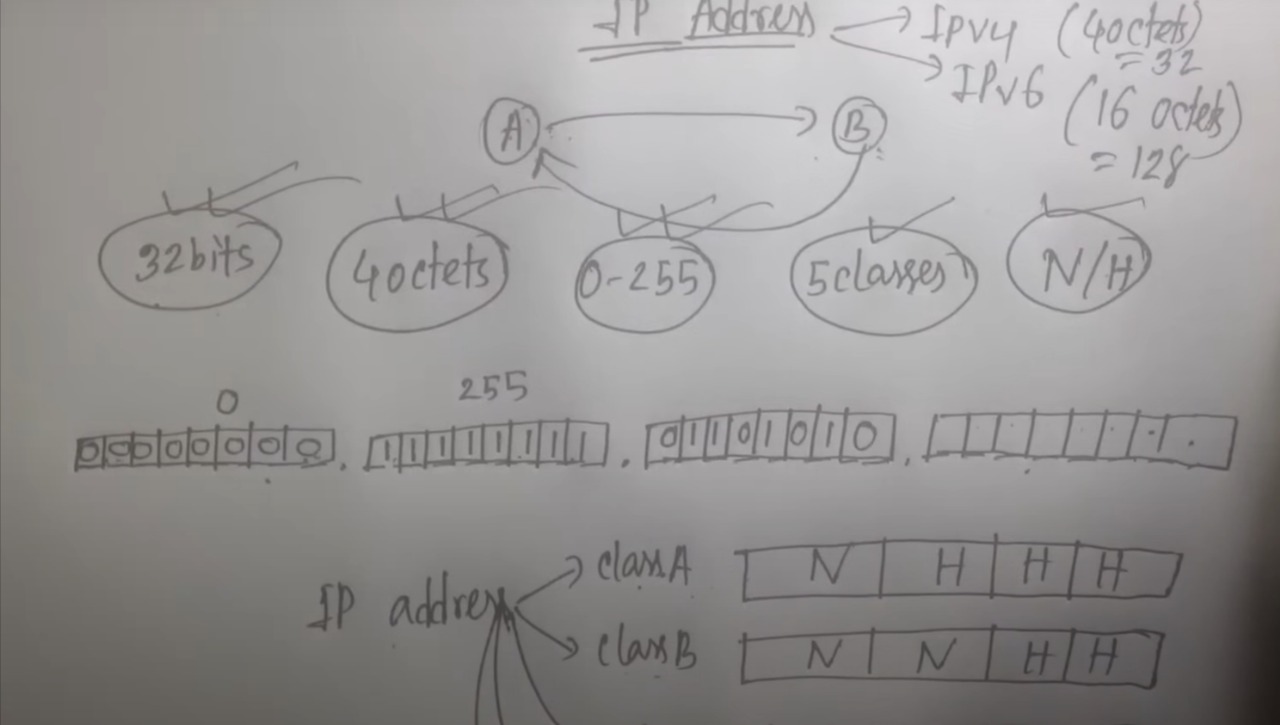 IP Address IPv4 (4octets)
= 32
IPv6 (16 octets)
= 128
A B
32bits 4octets 0-255 5classes N/H
0 255
00000000 . 11111111 . 01101010 .
IP address classA N H H H
classB N N H H